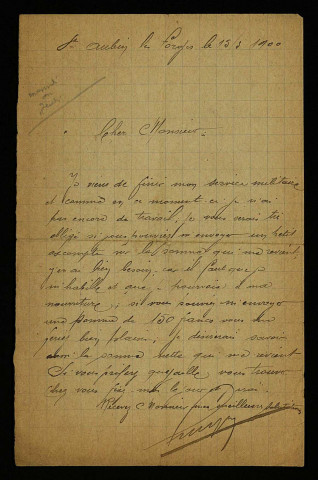 St Aubin les Forges le 13/3 1900
Cher Monsieur.
Je viens de finir mon service militaire
et comme en ce moment ci je n'ai
pas encore de travail, je vous serai très
obligé si vous pouviez m'envoyer un petit
escompte sur la somme qui me revient,
j'en ai bien besoin, car il faut que je
m'habille et que je pourvoie à ma
nourriture, si vous pouvez m'envoyer
une somme de 150 francs vous me
ferez bien plaisir; je désirerais savoir
alors la somme nette qui me revient
Si vous préférez que j'aille vous trouver
chez vous
Recevez Monsieur mes meilleures salutations